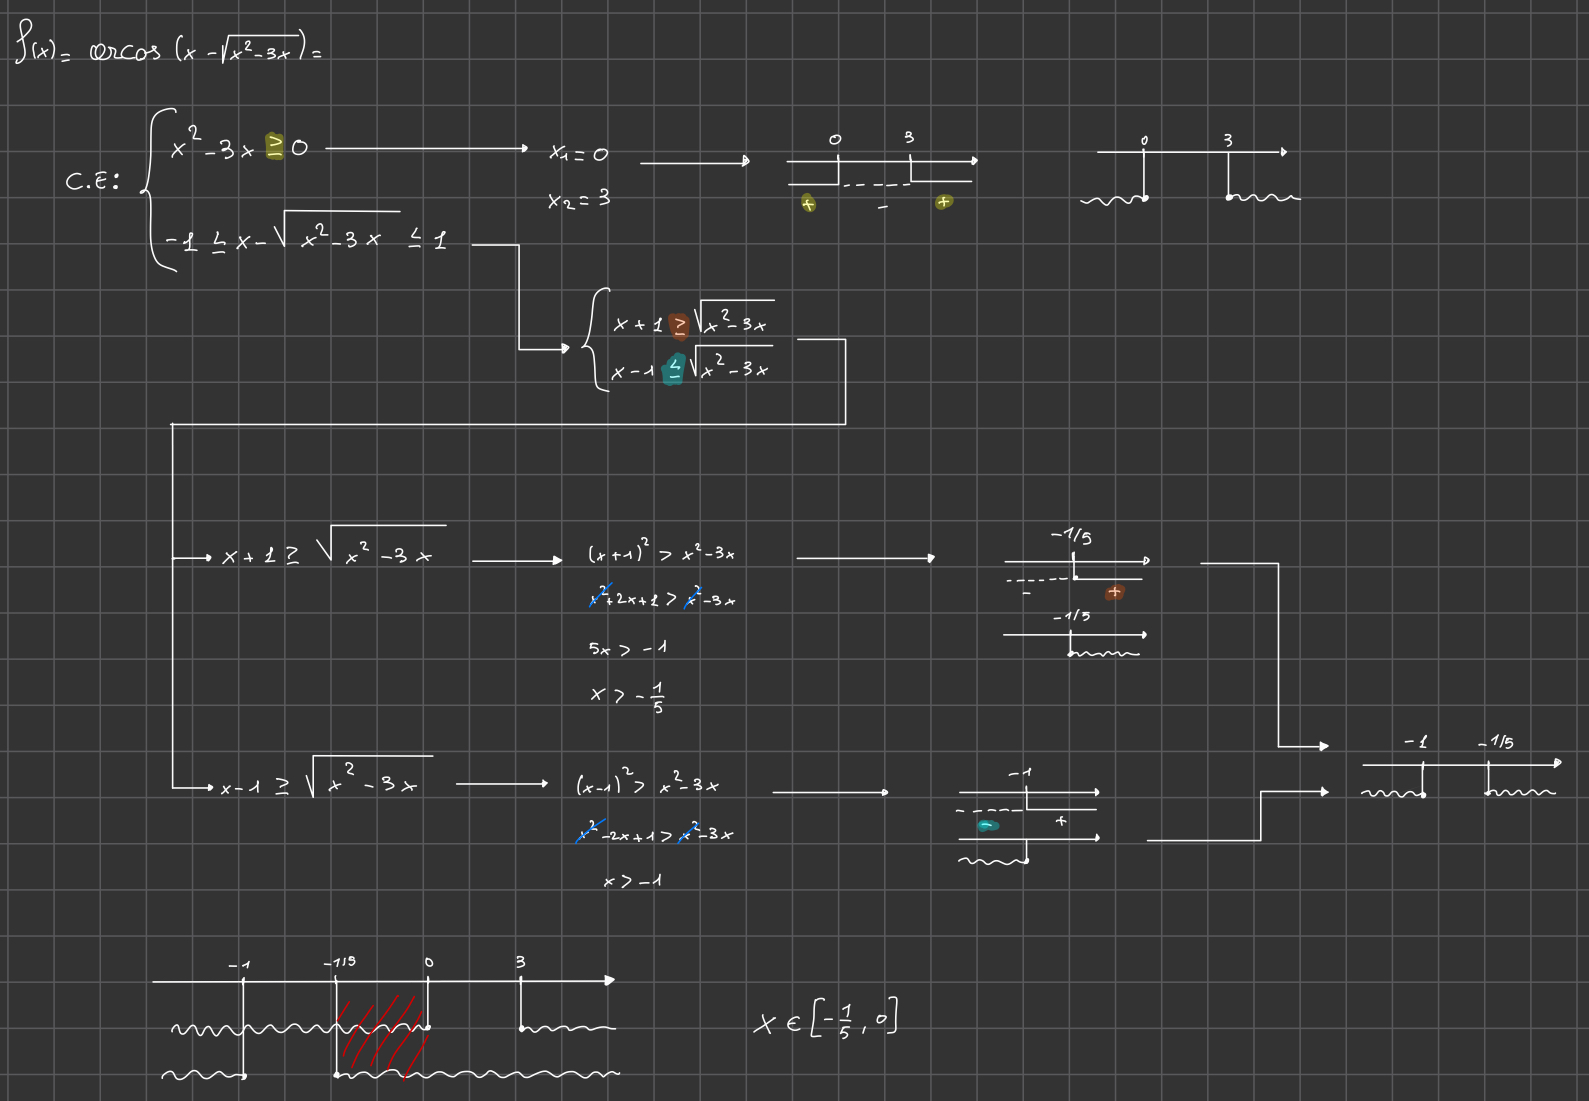 f(x) = arcos (x - √(x² - 3x)) =
C.E:
x² - 3x ≥ 0
x₁ = 0
x₂ = 3
0 3
+ - +
0 3
-1 ≤ x - √(x² - 3x) ≤ 1
x + 1 ≥ √(x² - 3x)
x - 1 ≤ √(x² - 3x)
x + 1 ≥ √(x² - 3x)
(x+1)² > x² - 3x
x² + 2x + 1 > x² - 3x
5x > -1
x > -1/5
-1/5
- +
-1/5
x - 1 ≥ √(x² - 3x)
(x-1)² > x² - 3x
x² - 2x + 1 > x² - 3x
x > -1
-1
- +
-1 -1/5
-1 -1/5 0 3
x ∈ [-1/5, 0]